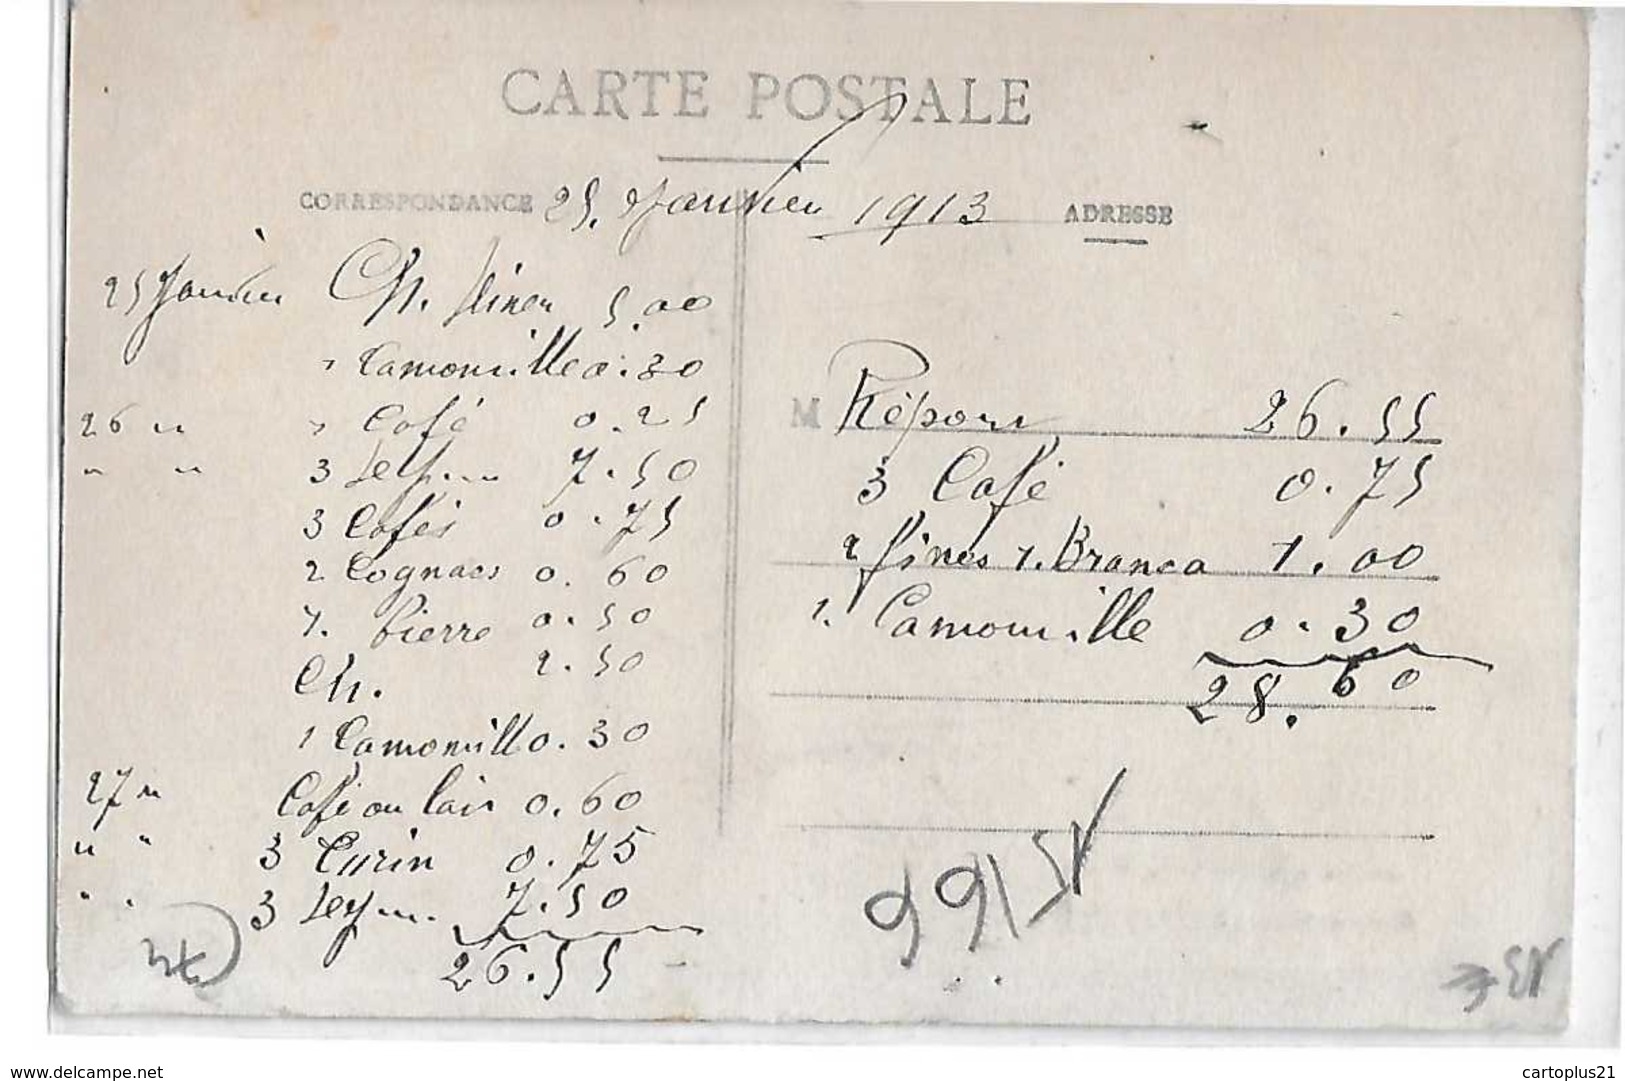 CARTE POSTALE
CORRESPONDANCE 25. Janvier 1913 ADRESSE
25 Janvier Ch. Diner 5.00
1 Camomille 0.30
26 " 1 Café 0.25
" " 3 7.50
3 Cafés 0.75
2 Cognacs 0.60
1. bierre 0.50
Ch. 2.50
1 Camomill 0.30
27 " Café au lait 0.60
" " 3 0.75
" " 3 7.50
26.55
M Réport 26.55
3 Café 0.75
2 fines 1. Branca 1.00
1. Camomille 0.30
28.60
www.delcampe.net
cartoplus21